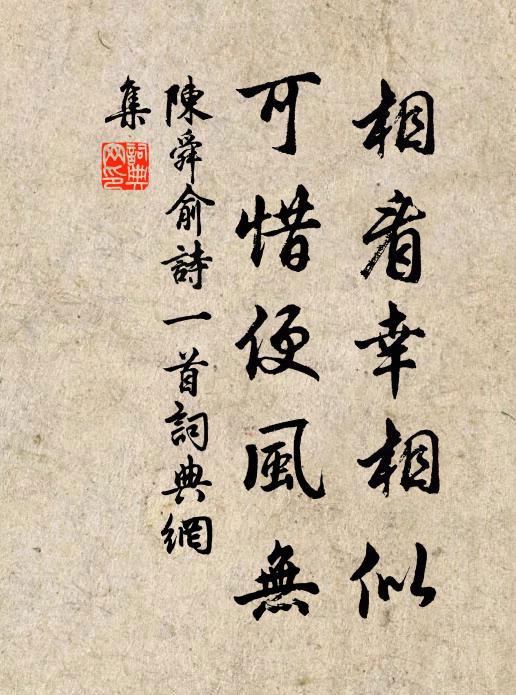 相看幸相似
可惜便風無
陳舜俞詩一首詞典網
集
詞典
网印